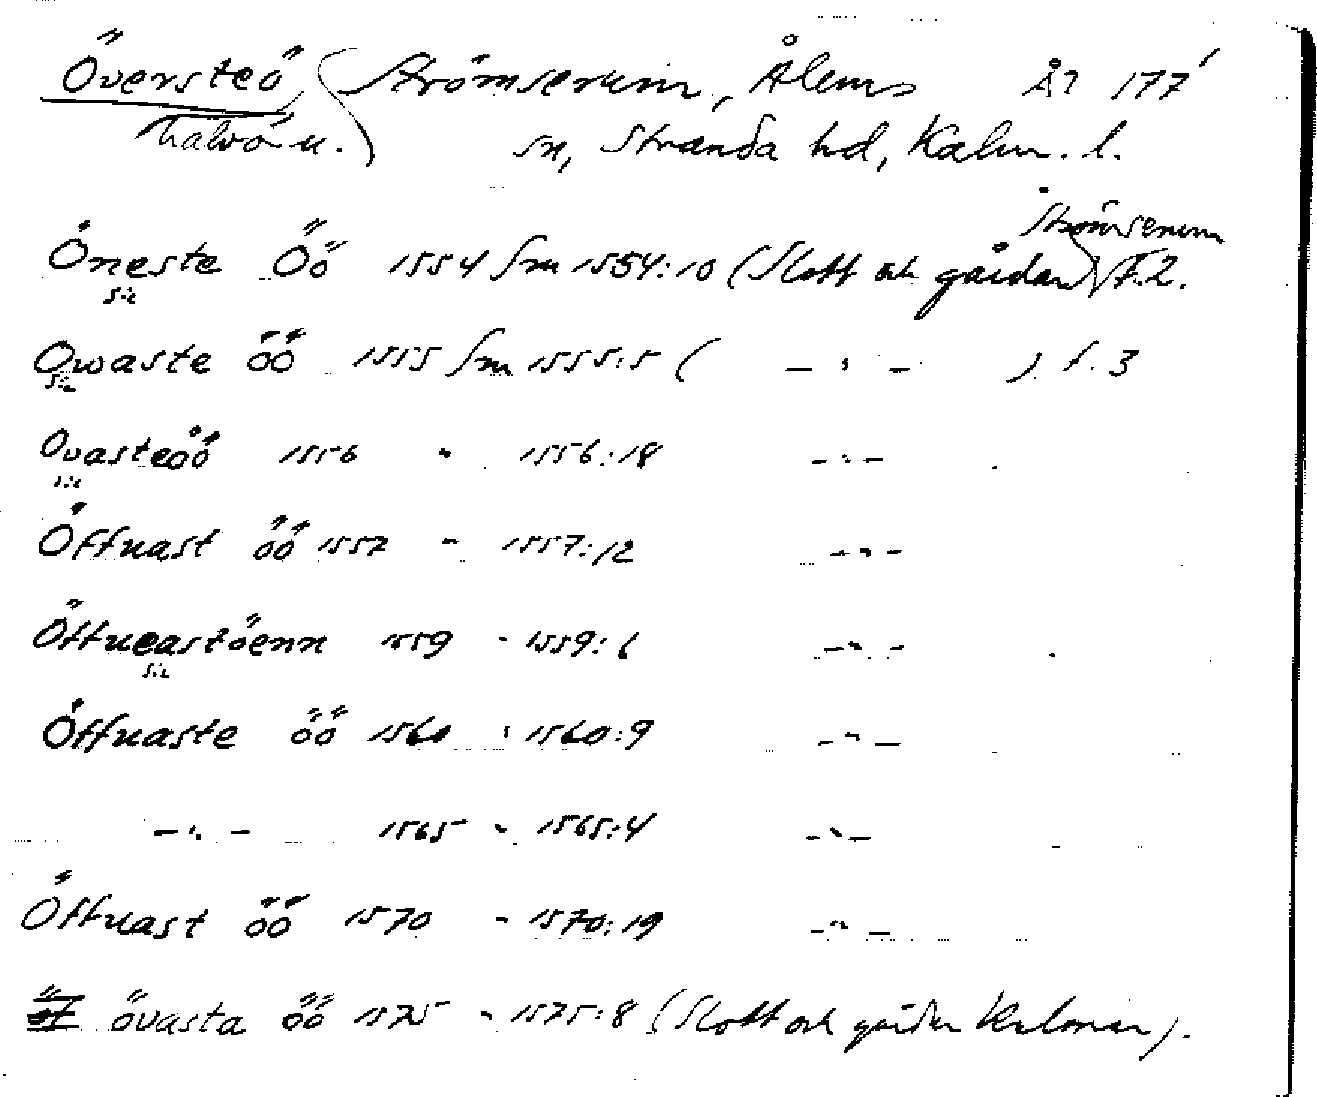 Översteö (Strömserum, Ålems År 177
halvö u.) sn, Stranda hd, Kalm. l.
Strömserum
Öneste Öö 1554 Sm 1554:10 (Slott och gårdar) f.2.
sic
Owaste öö 1555 Sm 1555:5 ( – " – ) f. 3
sic
Ovasteöö 1556 " 1556:18 – " –
sic
Öffuast öö 1557 " 1557:12 – " –
Öffueastöenn 1559 " 1559:6 – " –
sic
Öffuaste öö 1560 " 1560:9 – " –
– " – 1565 " 1565:4 – " –
Öffuast öö 1570 " 1570:19 – " –
övasta öö 1575 " 1575:8 (Slott och gårdar Kalmar).